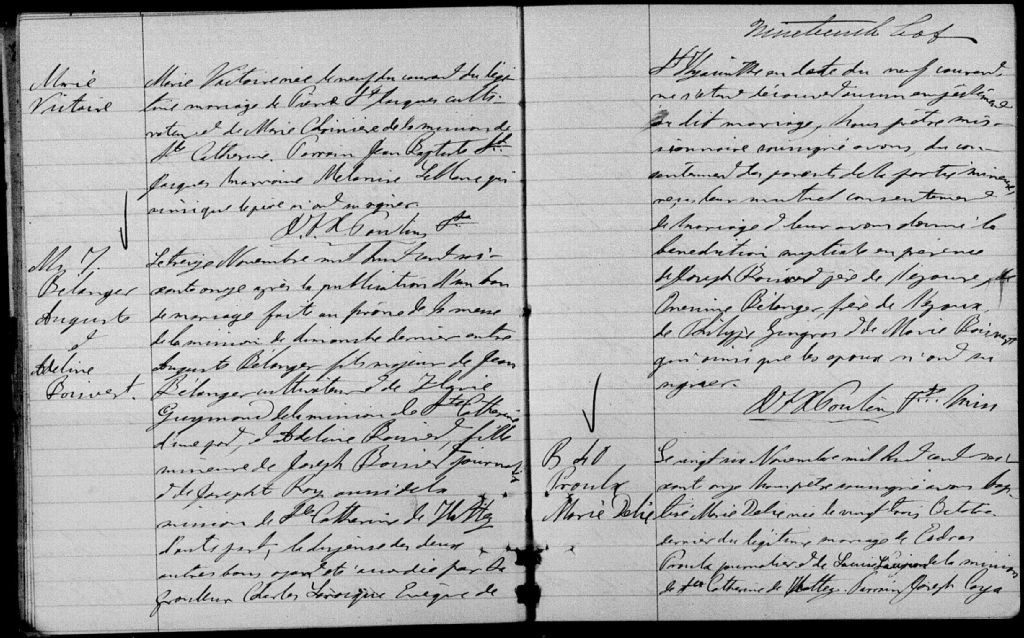 Marie
Victoire
Marie Victoire née le neuf du courant du légi-
time mariage de Pierre St. Jacques culti-
vateur et de Marie Choiniere de la mission de
Ste Catherine. Parrain Jean Baptiste St.
Jacques marraine Melanise Leblanc qui
ainsi que le père n'ont su signer.
Ptre
M. 7.
Bélanger
Auguste
et
Adeline
Boisvert.
Le treize Novembre mil huit cent soi-
xante onze après la publication d'un ban
de mariage faite au prône de la messe
de la mission de dimanche dernier entre
Auguste Bélanger fils majeur de Jean
Bélanger cultivateur et de
Guymond de la mission de Ste Catherine
d'une part, et Adeline Boisvert, fille
mineure de Joseph Boisvert journalier
et de Josephte Roy aussi de la
mission de Ste Catherine de Hatley
d'autre part; la dispense des deux
autres bans ayant été accordée par Sa
Grandeur Charles Larocque Evêque de
Nineteenth leaf
St Hyacinthe en date du neuf courant,
ne s'étant découvert aucun empêchement
au dit mariage, Nous prêtre mis-
sionnaire soussigné avons, du con-
sentement des parents de la partie mineure,
reçu leur mutuel consentement
de mariage et leur avons donné la
bénédiction nuptiale en présence
de Joseph Boisvert père de l'épouse,
Bélanger, frère de l'époux,
de Philippe Gingras et de Marie Boisvert
qui ainsi que les époux n'ont su
signer.
Ptre Miss
B 40
Proulx
Marie Delie
Le vingt six Novembre mil huit cent soi-
xante onze nous prêtre soussigné avons bap-
tisé Marie Delie née le vingt trois Octobre
dernier du légitime mariage de
Proulx journalier et de de la mission
de Ste Catherine de Hatley. Parrain Joseph